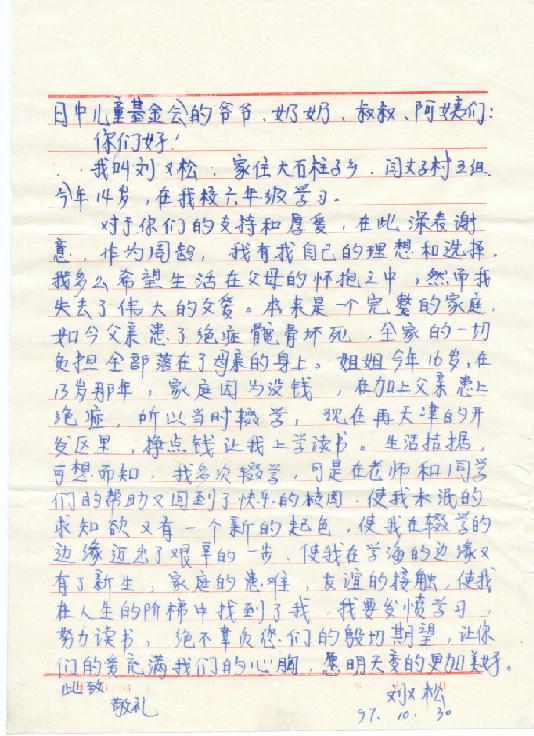 日中儿童基金会的爷爷、奶奶、叔叔、阿姨们:
你们好!
我叫刘又松,家住大石柱子乡,闫丈子村五组
今年14岁,在我校六年级学习。
对于你们的支持和厚爱,在此深表谢
意,作为同龄,我有我自己的理想和选择,
我多么希望生活在父母的怀抱之中,然而我
失去了伟大的父爱。本来是一个完整的家庭,
如今父亲患了绝症髋骨坏死,全家的一切
负担全部落在了母亲的身上。姐姐今年16岁,在
13岁那年,家庭因为没钱,在加上父亲患上
绝症,所以当时辍学,现在再天津的开
发区里,挣点钱让我上学读书。生活拮据,
可想而知,我多次辍学,可是在老师和同学
们的帮助又回到了快乐的校园,使我未泯的
求知欲又有一个新的起色,使我在辍学的
边缘迈出了艰辛的一步、使我在学海的边缘又
有了新生,家庭的患难,友谊的接触,使我
在人生的阶梯中找到了我,我要发愤学习,
努力读书,绝不辜负您们的殷切期望,让你
们的爱充满我们的心胸,愿明天变的更加美好。
此致
敬礼
刘又松
97.10.30